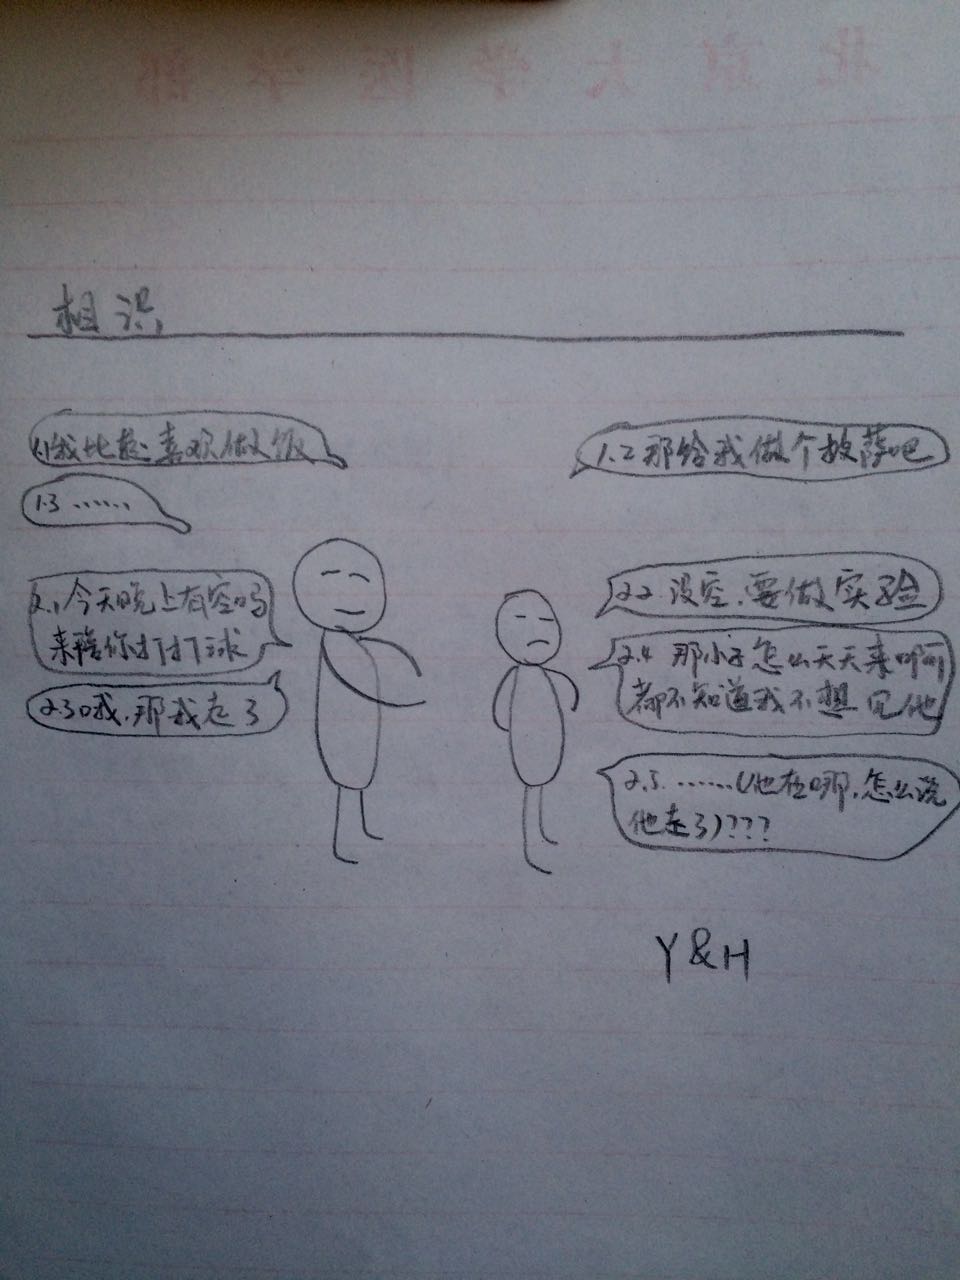 北京大学医学部
相识
1.1我比较喜欢做饭
1.2 那给我做个披萨吧
1.3 ……
2.1今天晚上有空吗
来陪你打打球
2.2 没空、要做实验
2.3 哦，那我走了
2.4 那小子怎么天天来啊啊
都不知道我不想见他
2.5 ……(他在哪，怎么说
他走了)???
Y&H